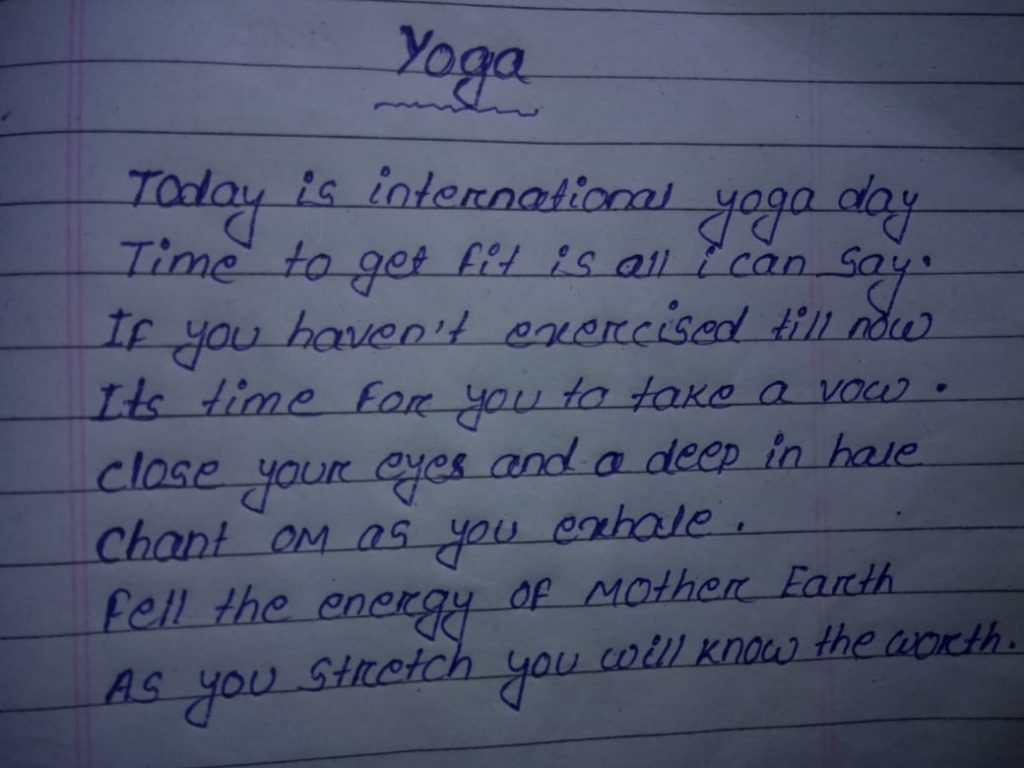 Yoga
Today is international yoga day
Time to get fit is all i can say.
If you haven't exercised till now
Its time for you to take a vow.
close your eyes and a deep in hale
chant OM as you exhale.
Fell the energy of Mother Earth
As you stretch you will know the worth.